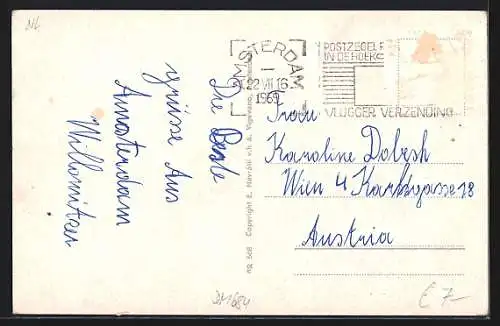 NL
AMSTERDAM
22 VII 16
1969
POSTZEGEL R
IN DE HOEK
VLUGGER VERZENDING
Die Beste
grüsse Aus
Amsterdam
Willomitzer
ng. 508 Copyright E.
Frau
Karoline Dobesh
Wien 4 Karlsgasse 18
Austria
€ 7-